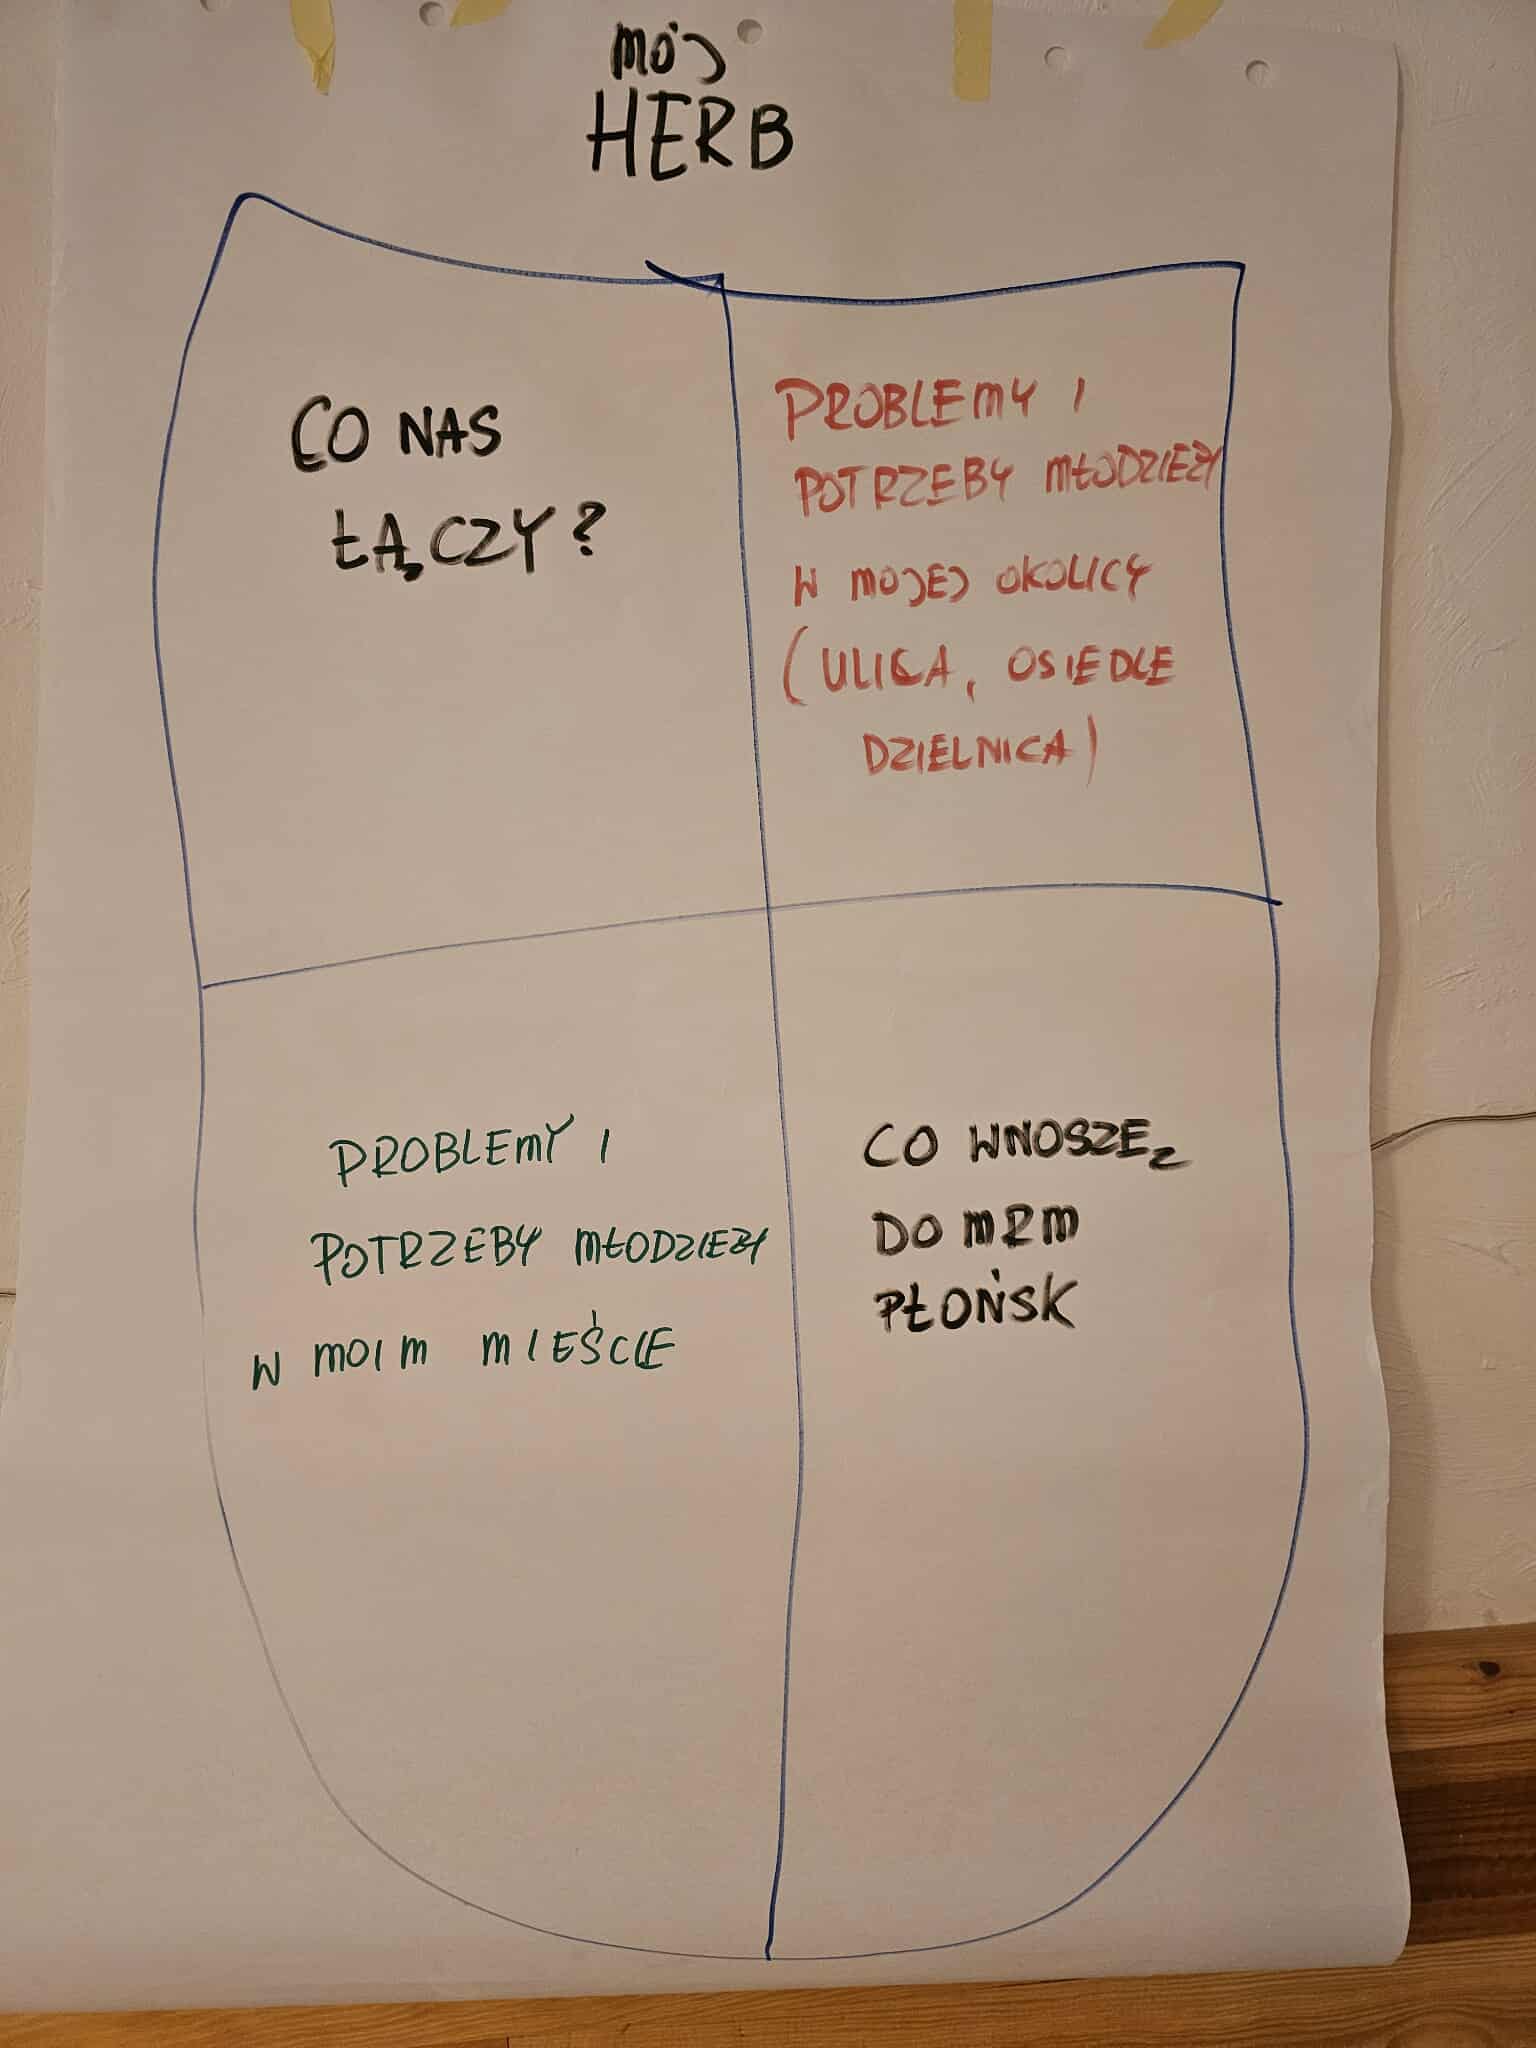 MÓJ
HERB
CO NAS
ŁĄCZY?
PROBLEMY I
POTRZEBY MŁODZIEŻY
W MOJEJ OKOLICY
(ULICA, OSIEDLE
DZIELNICA)
PROBLEMY I
POTRZEBY MŁODZIEŻY
W MOIM MIEŚCIE
CO WNOSZĘ
DO MRM
PŁOŃSK